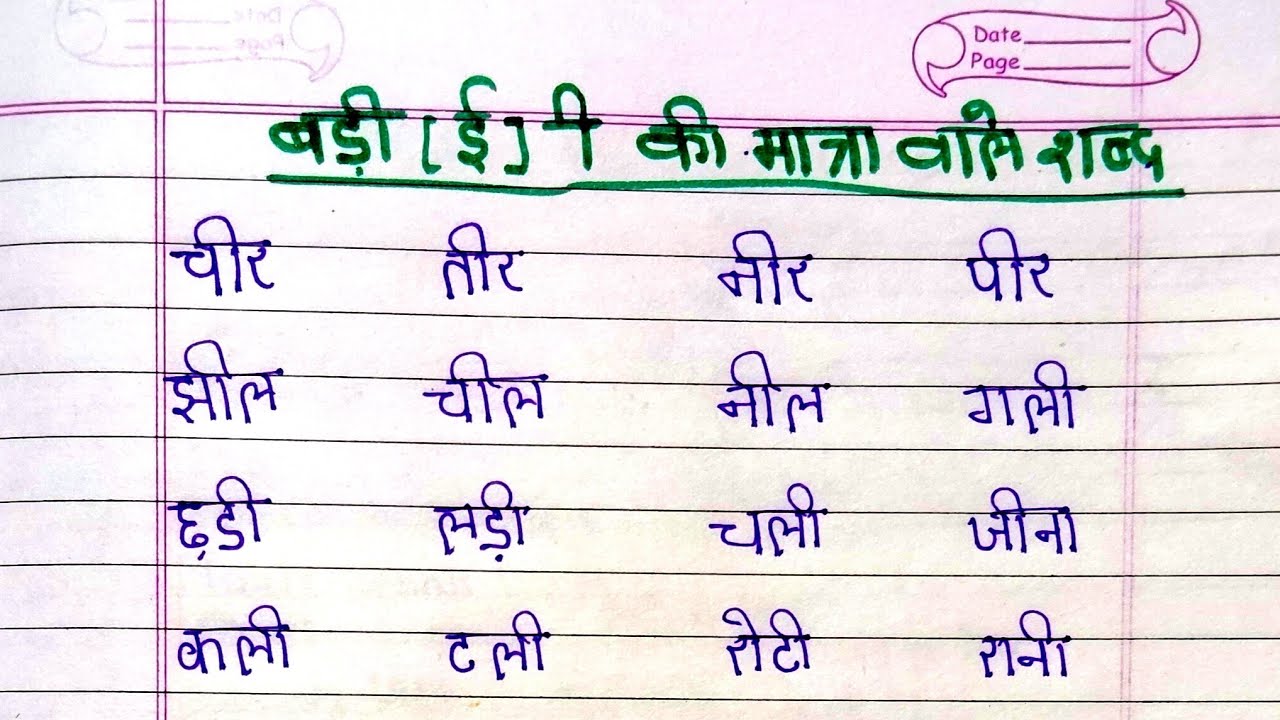 Date
Page
बड़ी [ई] ी की मात्रा वाले शब्द
चीर तीर नीर पीर
झील चील नील गली
छड़ी लड़ी चली जीना
कली टली रोटी रानी